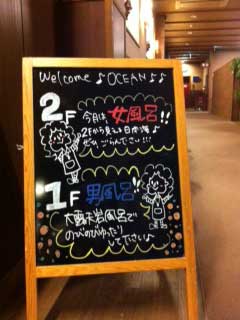 Welcome ♪ OCEAN ♪♪
2F
今月は女風呂!!
2Fから見える日向灘♪
ぜひごらん下さい!!!
1F
男風呂!!
大露天岩風呂で
のびのびゆったり
して下さい♪